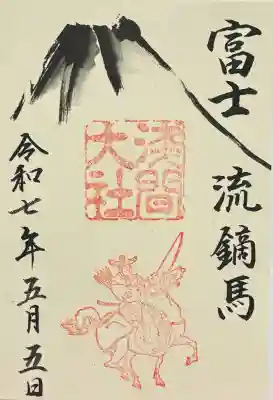 富士 流鏑馬
浅間
大社
令和七年五月五日